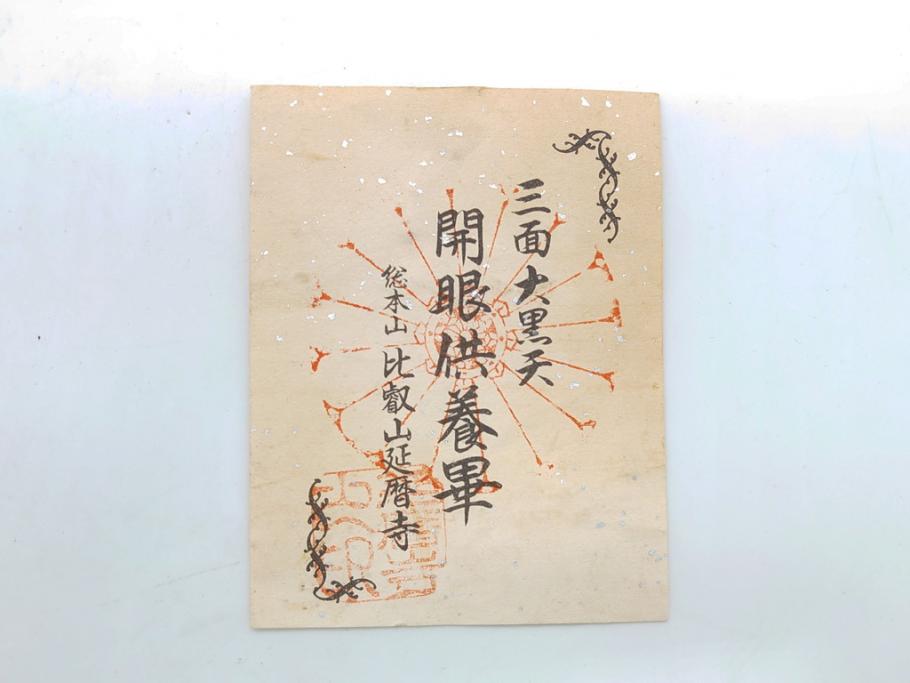 三面大黒天
開眼供養畢
総本山 比叡山延暦寺